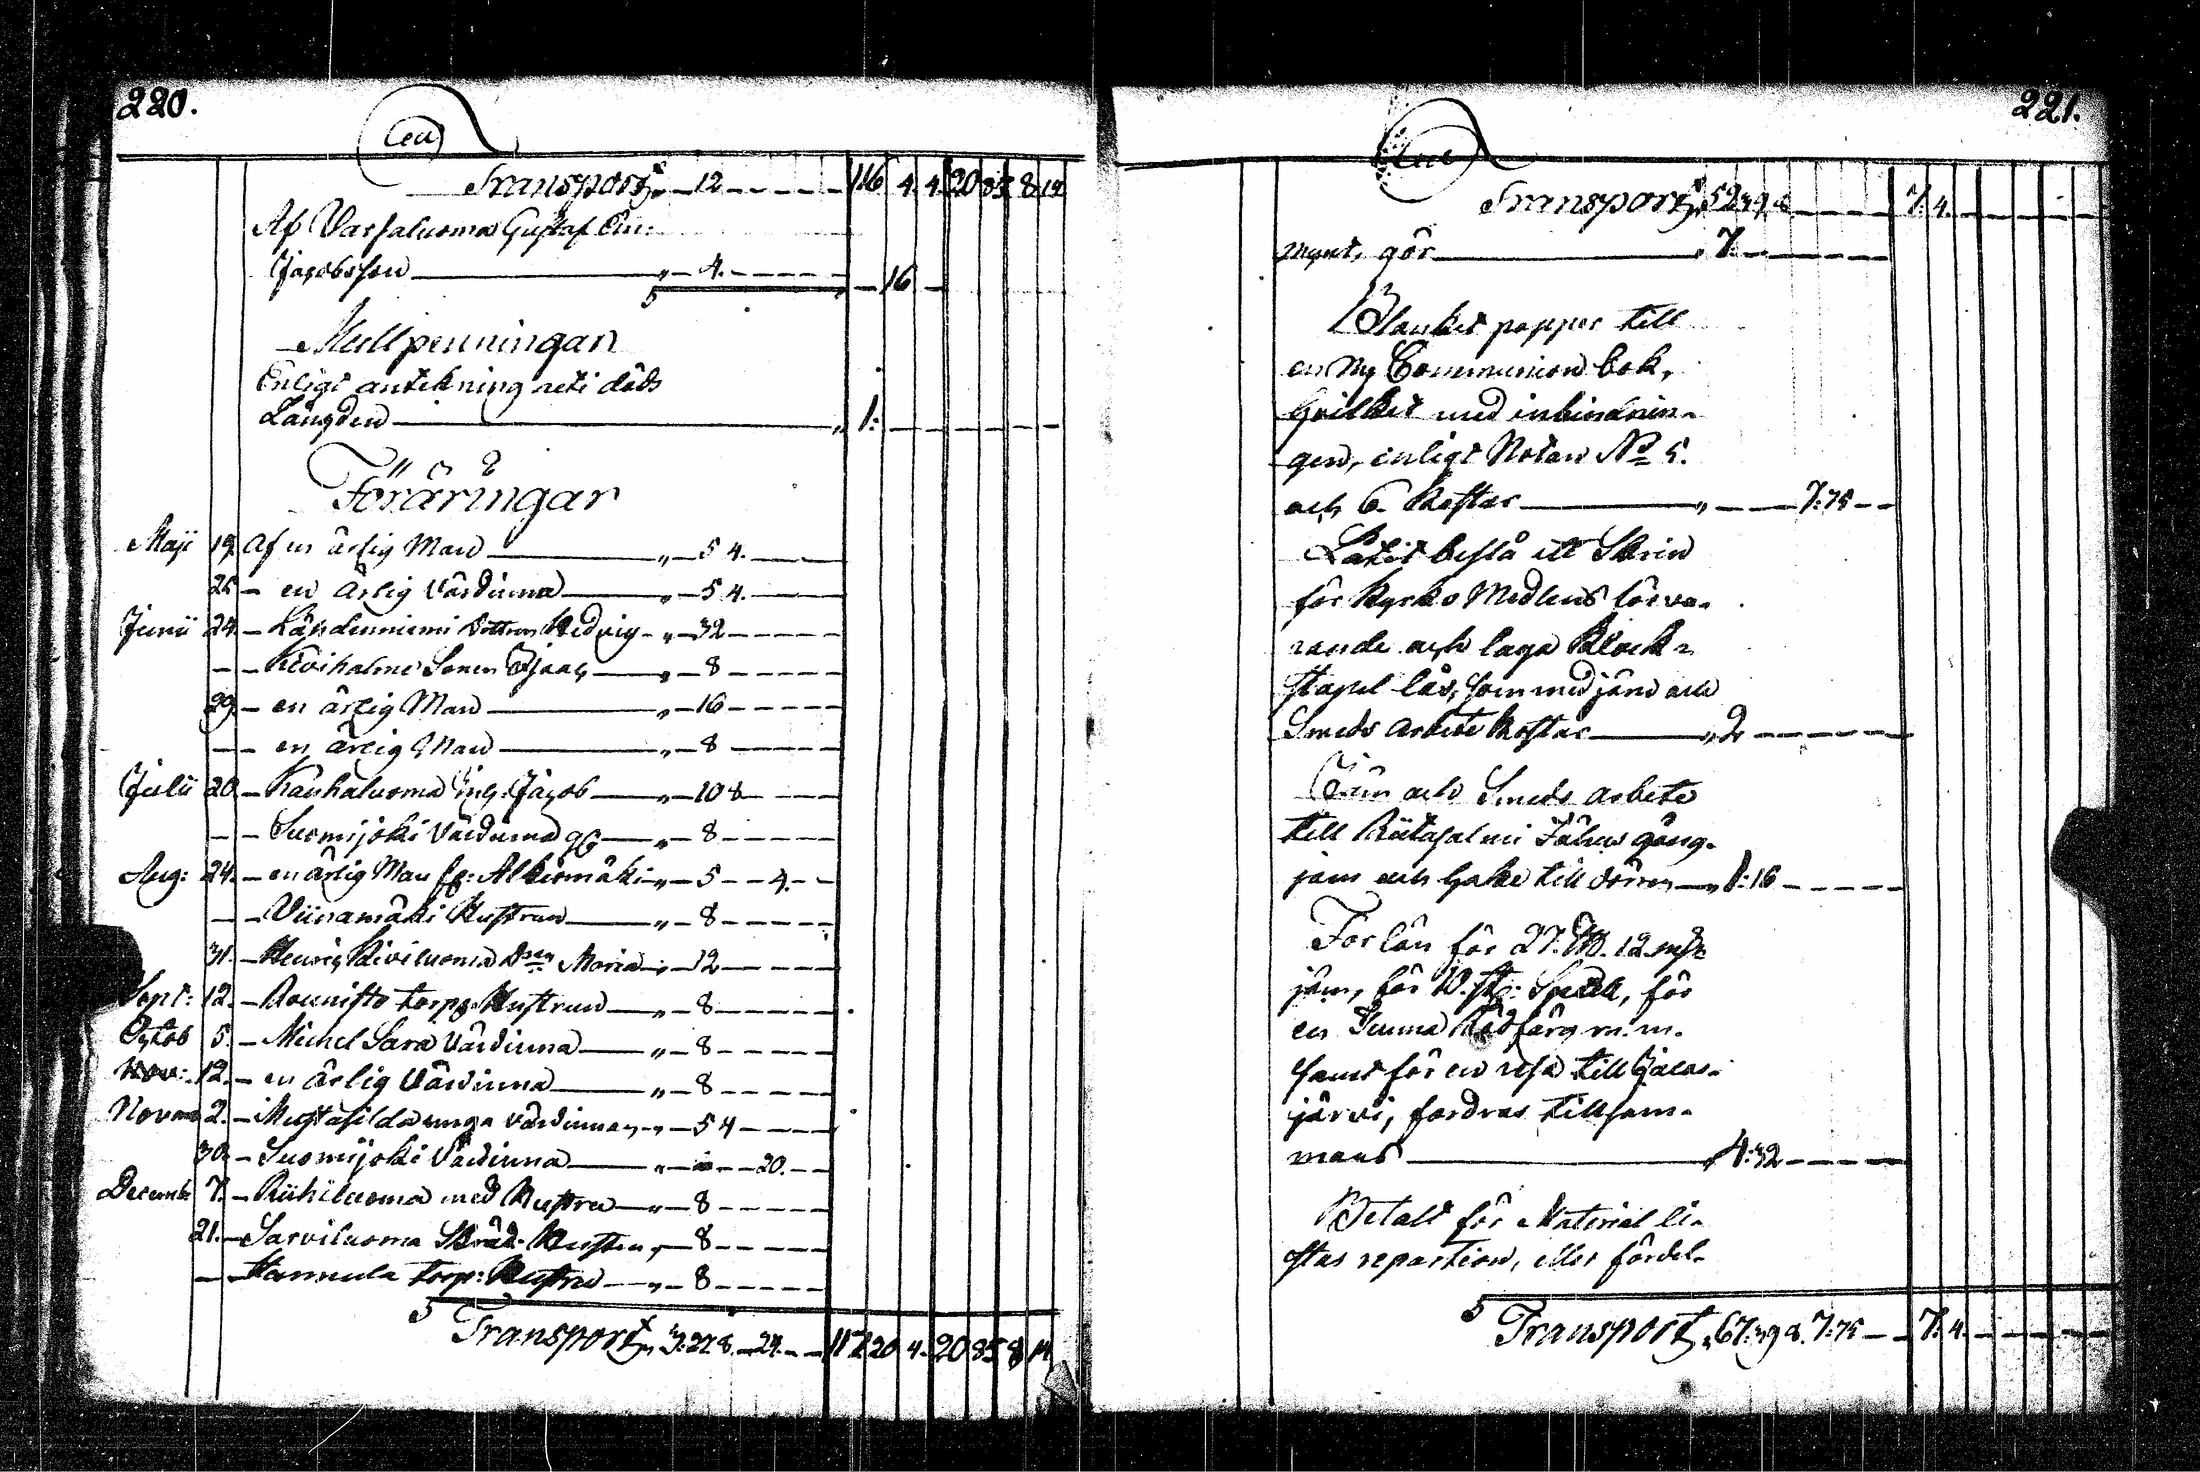 220.
Transport „ — 12 — — — 116 4. 4. 20 85 8 14
Af Varsaluoma Gustaf
Jacobsson „ — 4. — — — — 16
Mullpenningar
Enligt antekning uti döds
Längden „ 1:
Föräringar
Maji 19. Af en ärlig Man „ — 5 4.
25 — en ärlig Värdinna „ — 5 4.
Junii 24. — Hedvig „ — 32
— — Kiviholme Sonen „ — 8
29. — en ärlig Man „ — 16
— — en ärlig Man „ — 8
Julii 20 — Kauhaluoma Jacob „ — 10 8
— — Suomijoki Värdinna „ — 8
Aug: 24. — en ärlig Man fr: Alkiomäki „ — 5 — — 4.
— — Viinamäki Hustrun „ — 8
31. — Henric Kiviluoma Maria „ — 12
Sept: 12. — Rounisto torp. Hustrun „ — 8
Octob 5. — Michel Sara Värdinna „ — 8
Nov: 12. — en ärlig Värdinna „ — 8
Novem 2. — unga värdinna „ — 5 4
30. — Suomijoki Värdinna „ — — 20.
Decemb 7. — Riihiluoma med Hustru „ — 8
21. — Sarviluoma Skräd. Hustru „ — 8
— Hannula torp: Hustru „ — 8
Transport „ 3:27. 8. — 24. — 117 20 4. 20 85 8 14
221.
Transport „ 52:39. 8 7. 4.
mynt, gör „ 7.
Blanket papper till
en ny Communion bok,
hvilket med inbindnin-
gen, enligt Notan No 5.
och 6. kostar „ — — 7:75
Låtit beslå ett Skrin
för Kyrko Medlens förva-
rande och laga Klock-
stapel lås, som med järn och
Smeds arbete kostar „ 2
Järn och Smeds arbete
till gång-
järn och hake till dörren „ 1:16
Forlön för 27. 12.
järn, för 10. för
en Tunna Rödfärg m.m.
samt för en resa till Jalas-
järvi, fordras tillsam-
mans „ 4:32
Betalt för Material li-
stas repartion, eller fördel-
Transport „ 67:39 8. 7:75 — 7. 4.